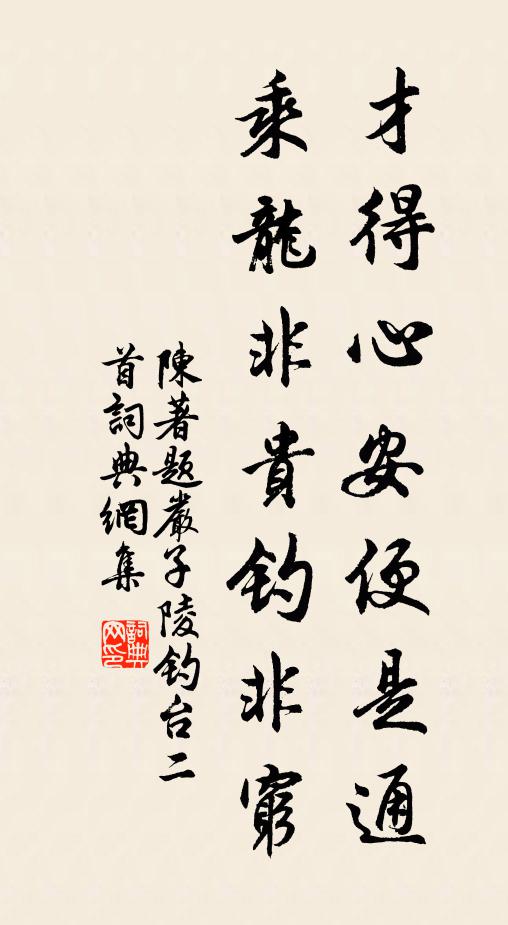 才得心安便是通
乘龍非貴钓非窮
陳著題嚴子陵钓台二
首詞典網集
詞典网印